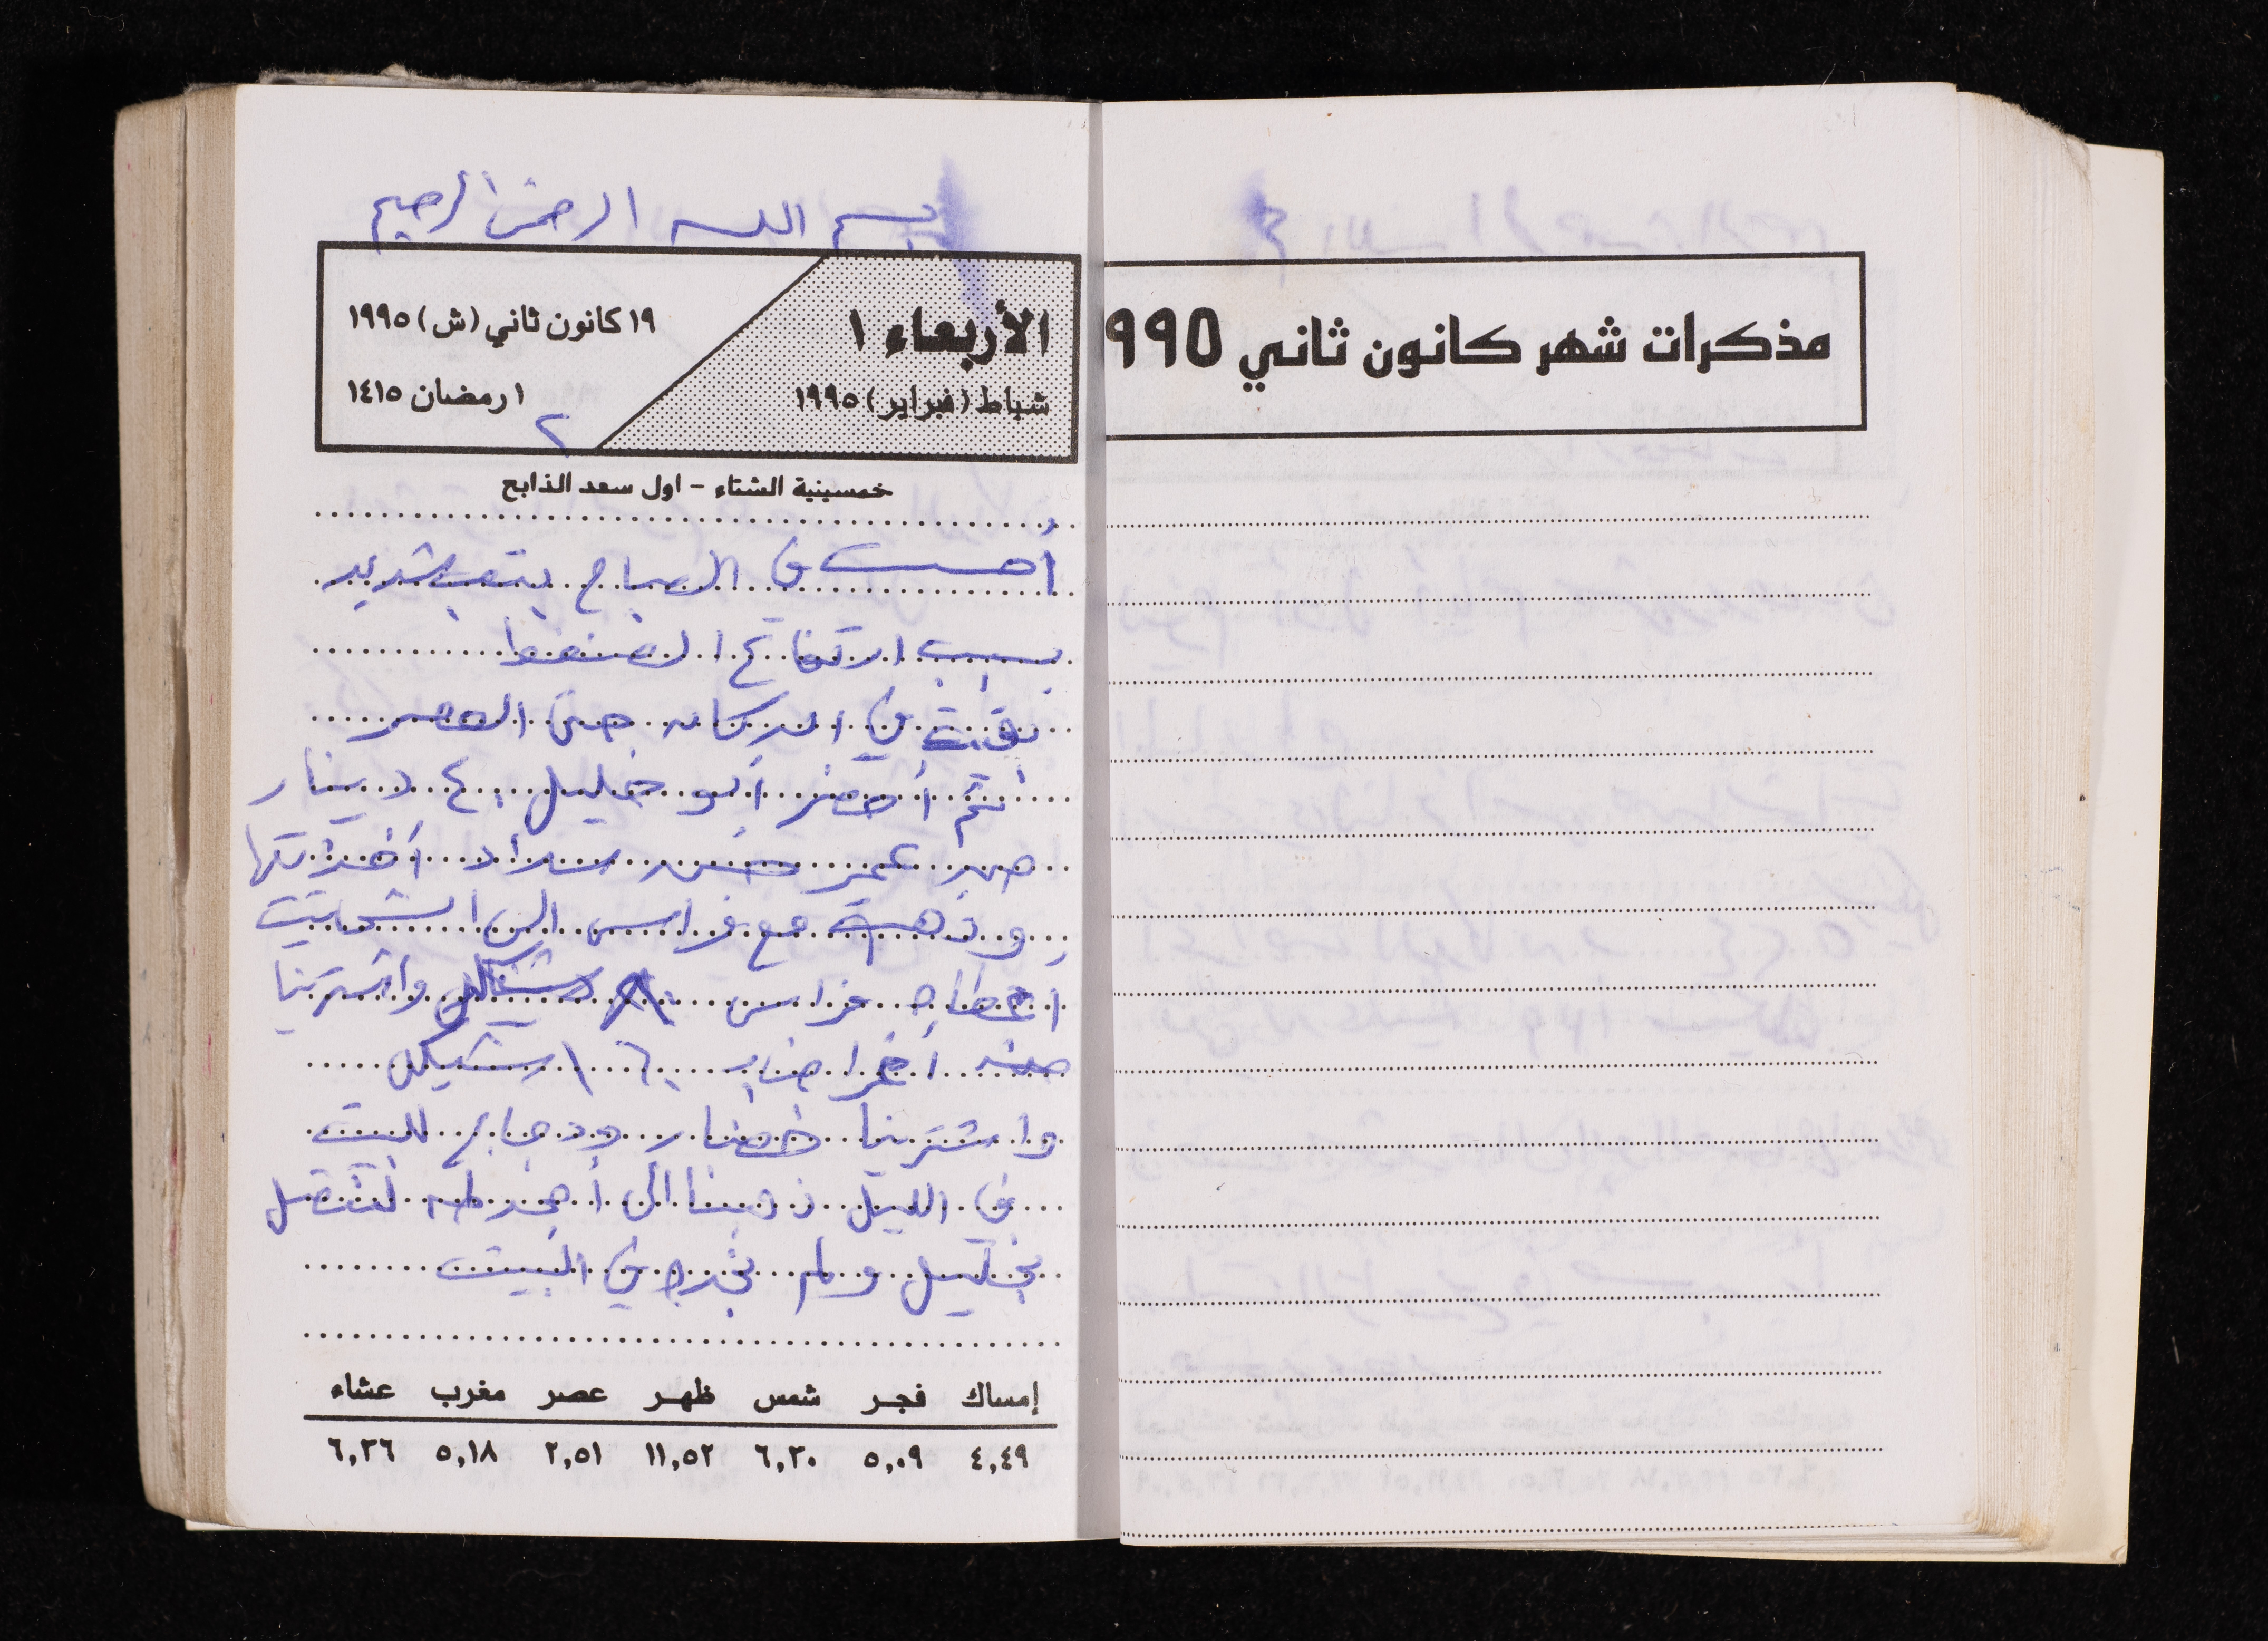 مذكرات شهر كانون ثاني ٩٩٥
بسم الله الرحمن الرحيم
الأربعاء ١
شباط (فبراير) ١٩٩٥
١٩ كانون ثاني (ش) ١٩٩٥
١ رمضان ١٤١٥
٢
خمسينية الشتاء - اول سعد الذابح
أحسست في الصباح بتعب شديد
بسبب ارتفاع الضغط
بقيت في الدكان حتى العصر
ثم أحضر أبو خليل ٤٠ دينار
من عمر حسن أخذتها
وذهبت مع فراس الى
اعطاه فراس شيكل واشترينا
منه أغراض ب ١٦٠ شيكل
واشترينا خضار ودجاج للبيت
في الليل ذهبنا الى أحمد طه لنتصل
بخليل ولم نجده في البيت
إمساك فجر شمس ظهر عصر مغرب عشاء
٤,٤٩ ٥,٠٩ ٦,٣٠ ١١,٥٢ ٢,٥١ ٥,١٨ ٦,٣٦